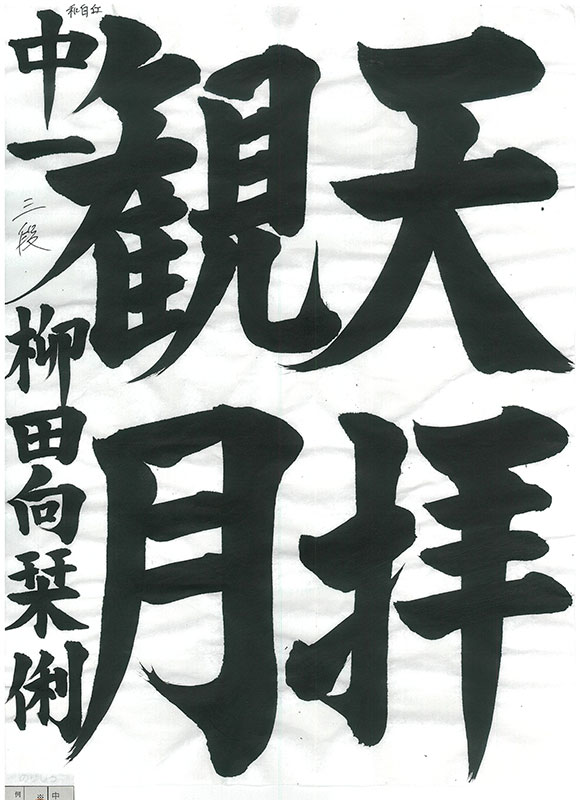 天拝
観月
中一 三段 柳田向栞俐
和白丘
例 ※ 中